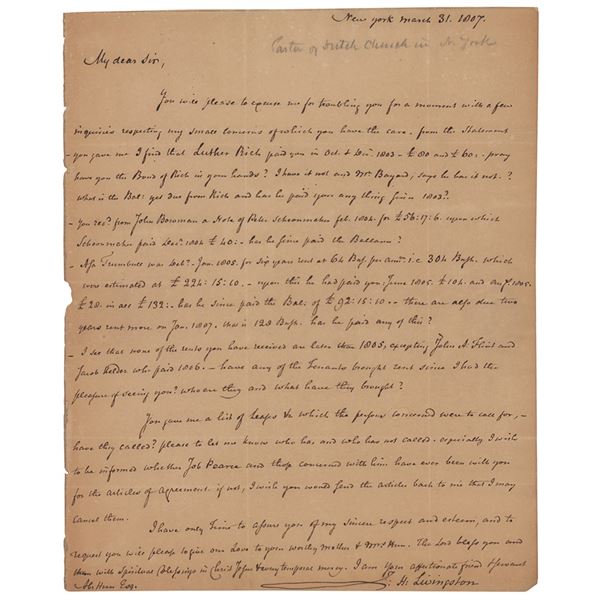 New York march 31. 1807.
Pastor of Dutch Church in N. York
My dear Sir,
You will please to excuse me for troubling you for a moment with a few
inquiries respecting my small concerns of which you have the care. from the Statement
- you gave me I find that Luther Rich paid you in Oct. & Decr. 1803 - £80 and £60: - pray
have you the Bond of Rich in your hands? I have it not and Mr. Bayard, says he has it not.?
What is the Bal: yet due from Rich and has he paid you any thing since 1803?
- You recd. from John Bowman a Note of Peter Schoonmaker feb. 1804. for £56:17:6. upon which
Schoonmaker paid Decr. 1804 £40: - has he since paid the Ballance?
- Asa Trumbull was debtr. Jan. 1805. for six years rent at 64 Bus. per ann. i.e 304 Bush. which
were estimated at £224:15:10. - upon this he had paid you June 1805. £104. and Augt. 1805.
£28. in all £132: - has he since paid the Bal: of £92:15:10. - there are also due two
years rent more on Jan. 1807. that is 128 Bush. has he paid any of this?
- I see that none of the rents you have received are later than 1805, excepting John A. Flint and
Jacob Kelder who paid 1806. - have any of the Tenants brought rent since I had the
pleasure of seeing you? who are they and what have they brought?
You gave me a list of Leases &c which the persons concerned were to call for, -
have they called? please to let me know who has, and who has not called. especially I wish
to be informed whether Job Pearce and those concerned with him have ever been with you
for the articles of agreement. if not, I wish you would send the articles back to me that I may
cancel them.
I have only time to assure you of my sincere respect and esteem, and to
request you will please to give our Love to your worthy Mother & Mrs. Hun. The Lord bless you and
them with Spiritual blessings in Christ Jesus & every temporal mercy. I am Your affectionate friend & servant
Hun Esq.
J. H. Livingston